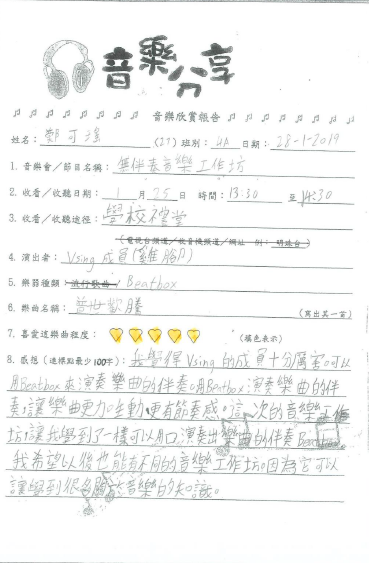 音樂分享
音樂欣賞報告
姓名：鄭可瑤 (27) 班別：4A 日期：28-1-2019
1. 音樂會／節目名稱：無伴奏音樂工作坊
2. 收看／收聽日期：1月25日 時間：13:30 至 14:30
3. 收看／收聽途徑：學校禮堂
（電視台頻道／收音機頻道／網址 例：明珠台）
4. 演出者：Vsing 成員(雞胎)
5. 樂器種類／流行歌曲／Beatbox
6. 樂曲名稱：普世歡騰 （寫出其一首）
7. 喜愛這樂曲程度： （填色表示）
8. 感想（這樣點最少100字）：我覺得Vsing的成員十分厲害。可以
用Beatbox來演奏樂曲的伴奏。用Beatbox演奏樂曲的伴
奏，讓樂曲更力。生動，更有節奏感。這次的音樂工作
坊，讓我學到了一樣可以用口演奏出樂曲的伴奏Beatbox。
我希望以後也能有不同的音樂工作坊。因為它可以
讓學到很多關於音樂的知識。